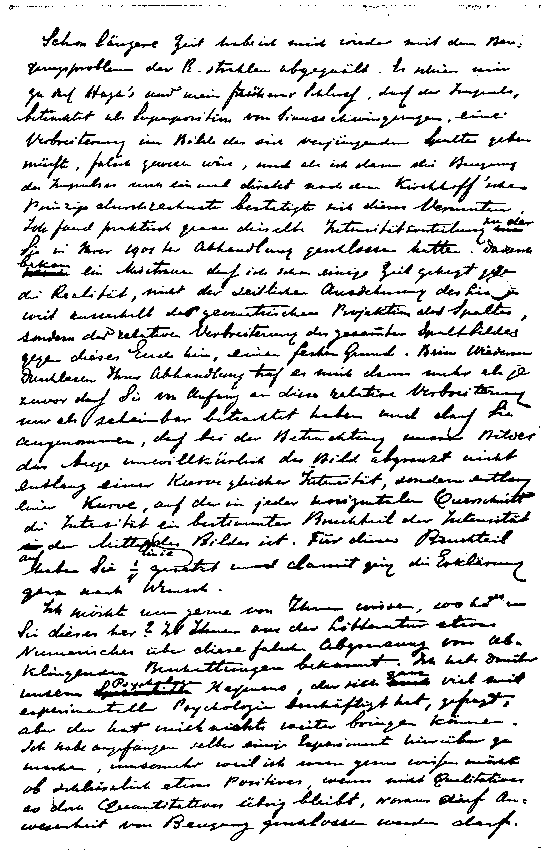 Schon längere Zeit habe ich mich wieder mit dem Beu-
gungsproblem der R.strahlen abgequält. Es schien mir
zu auf Haga's und mein früherer Schluss, dass der Impuls,
betrachtet als Superposition von Sinusschwingungen, eine
Verbreiterung im Bilde des sich verjüngenden Spaltes geben
müsst, falsch gewesen wäre, und als ich dann die Beugung
des Impulses noch einmal direkt nach dem Kirchhoff'schen
Prinzip durchrechnete bestätigte sich dieses Vermuten
Ich fand praktisch genau dieselbe Intensitätsverteilung zu der
Sie in Ihrer 1901er Abhandlung geschlossen hatten. Dadurch
bekam ein Misstrauen dass ich schon einige Zeit gehegt gegen
die Realität, nicht der seitlichen Ausdehnung des
weit ausserhalb der geometrischen Projektion des Spaltes,
sondern der relativen Verbreiterung des gesamten Spaltbildes
gegen dieses Ende hin, einen festen Grund. Beim Wiedern
Durchlesen Ihrer Abhandlung traf es mich dann mehr als je
zuvor dass Sie von Anfang an diese relative Verbreiterung
nur als scheinbar betrachtet haben und dass Sie
angenommen, dass bei der Betrachtung unserer Bilder
das Auge unwillkürlich das Bild abgrenzt nicht
entlang einer Kurve gleicher Intensität, sondern entlang
einer Kurve, auf der in jeder horizontalen Querschnitt
die Intensität ein bestimmter Bruchteil der Intensität
auf der Mittellinie des Bildes ist. Für diesen Bruchteil
haben Sie gesetzt und damit ging die Erklärung
ganz nach Wunsch.
Ich möcht nun gerne von Ihnen wissen, wo hat'n
Sie dieses her? Ist Ihnen aus der Litteratur etwas
Numerisches über diese falsche Abgrenzung von Ab-
klingenden Beleuchtungen bekannt. Ich hab darüber
unsern Psychologe Heymans, der sich ganz viel mit
experimenteller Psychologie beschäftigt hat, gefragt,
aber der hat mich nichts weiter bringen können.
Ich habe angefangen selber einige Experiment hierüber zu
machen, umsomehr weil ich nun gern wissen möcht
ob schliesslich etwas Positives, wenn nicht Qualitatives
so doch Quantitatives übrig bleibt, woraus auf An-
wesenheit von Beugung geschlossen werden darf.